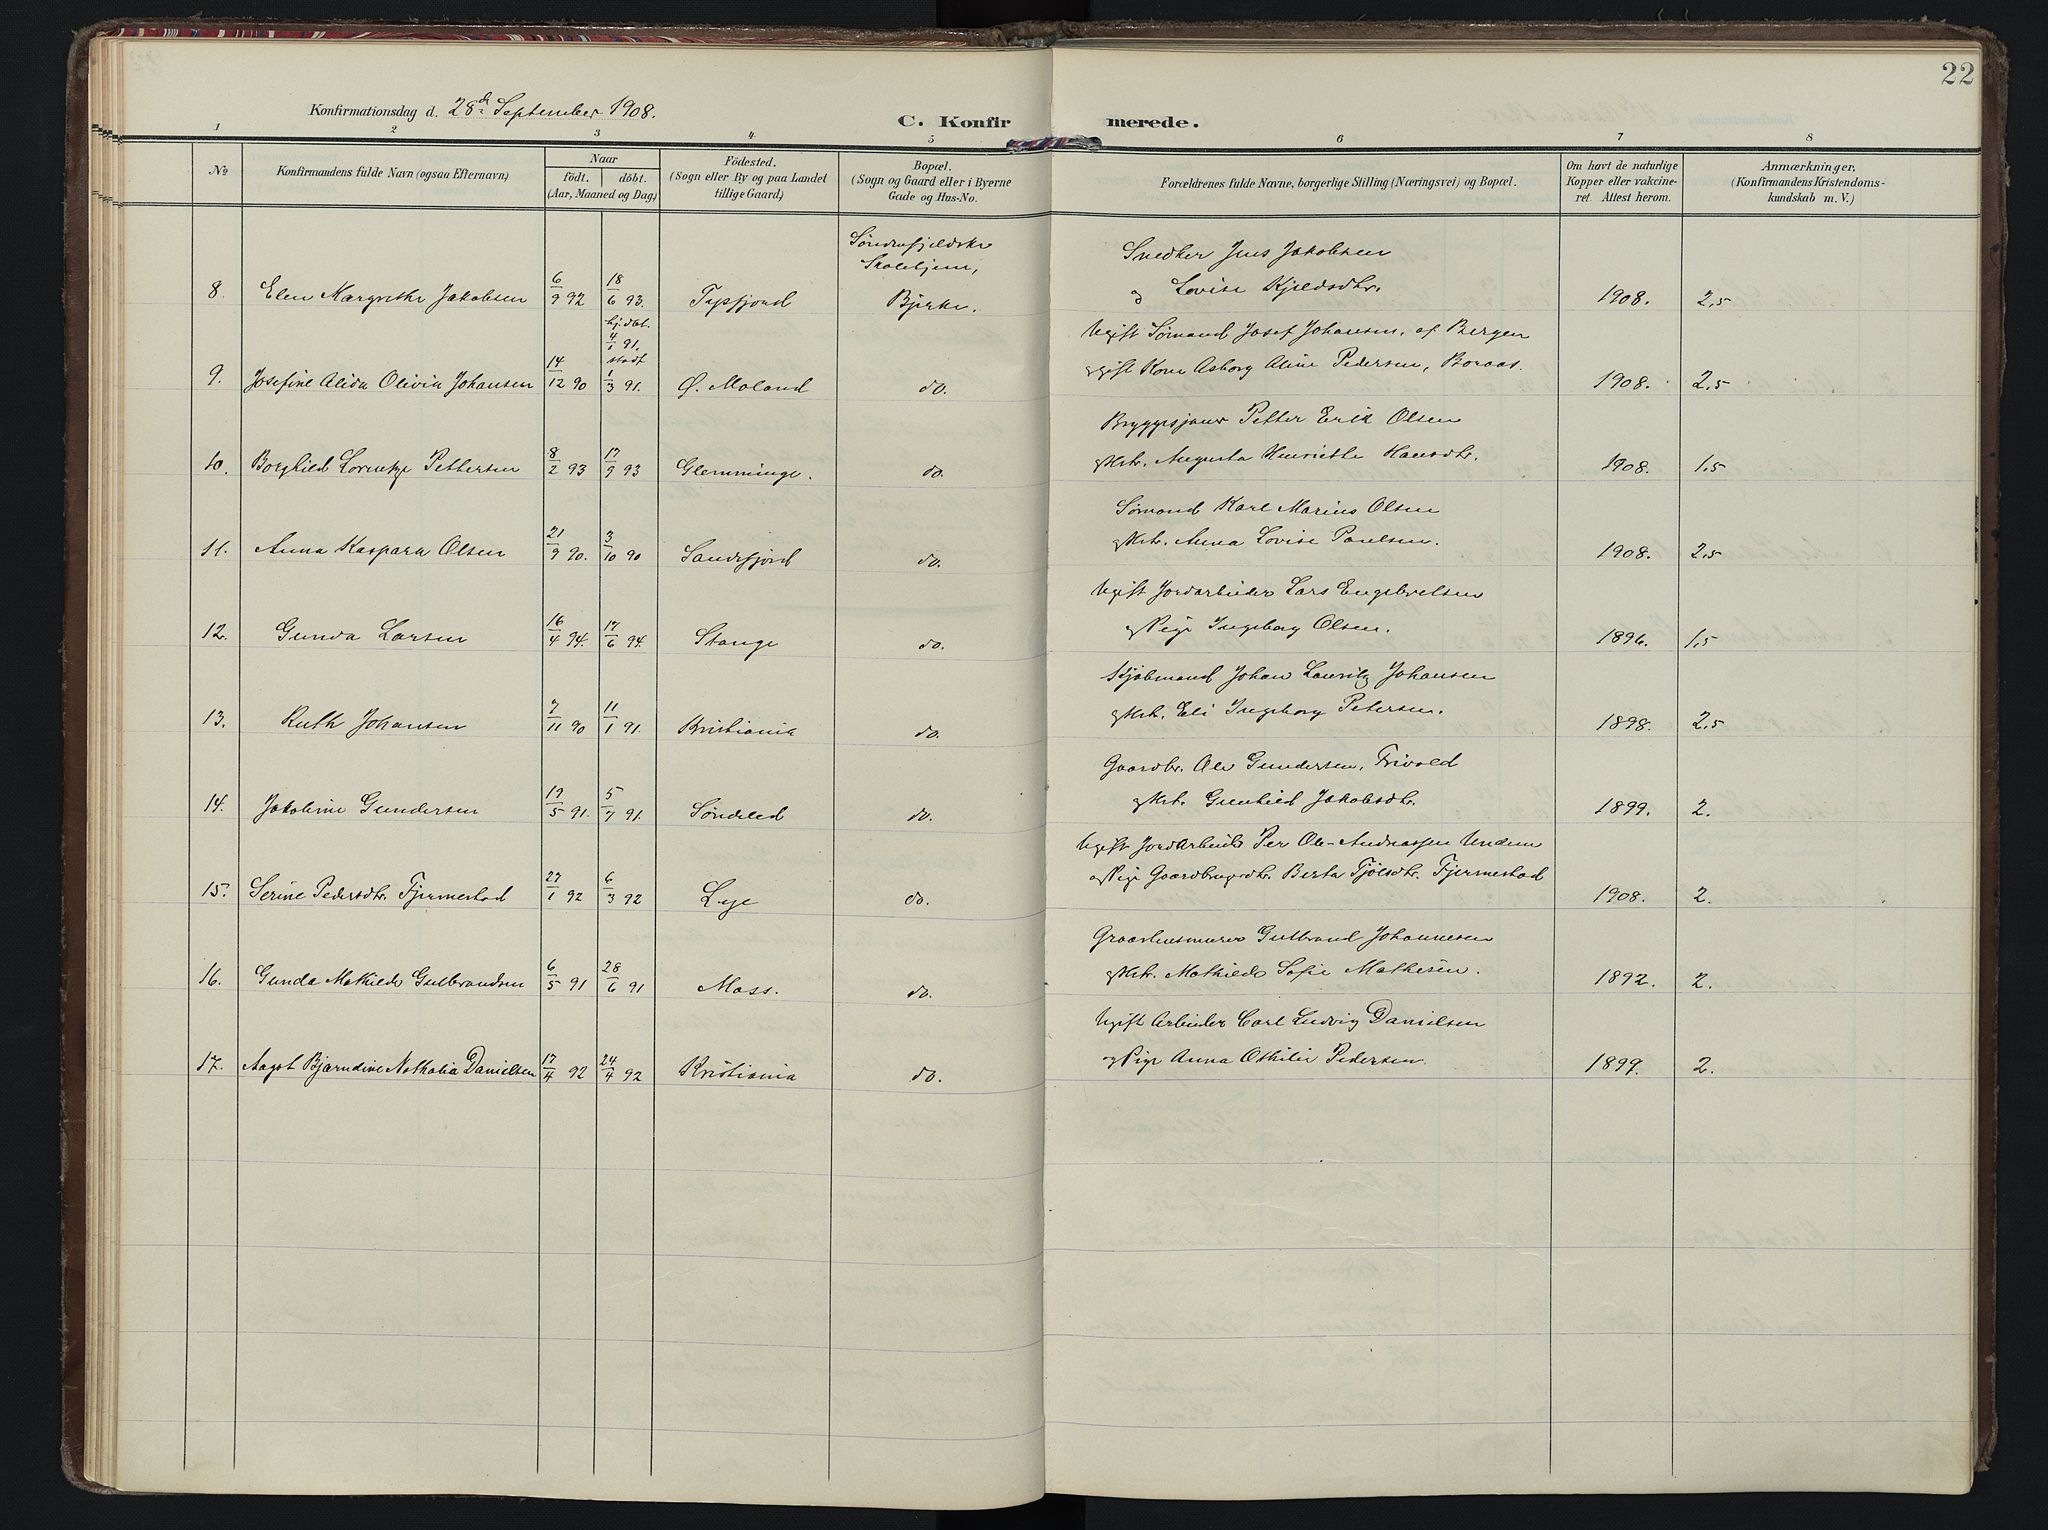 22
Konfirmationsdag d. 28d. September 1908.
C. Konfirmerede.
1 2 3 4 5 6 7 8
No
Konfirmandens fulde Navn (ogsaa Efternavn)
Naar
født. døbt.
(Aar, Maaned og Dag)
Födested.
(Sogn eller By og paa Landet
tillige Gaard)
Bopæl.
(Sogn og Gaard eller i Byerne
Gade og Hus-No.
Forældrenes fulde Navne, borgerlige Stilling (Næringsvei) og Bopæl.
Om havt de naturlige
Kopper eller vakcine-
ret. Attest herom.
Anmærkninger,
(Konfirmandens Kristendoms-
kundskab m. V.)
Søndenfjeldske
Skolehjem,
Snedker Jens Jakobsen
8. Elen Margrethe Jakobsen 6/9 92 18/6 93. Tysfjord Bjerke. og Lovise Kjeldsdtr. 1908. 2,5
hj.døbt. 4/1 91. stadf.
Ugift Sømand Josef Johansen, af Bergen
9. Josefine Alida Olivia Johansen 14/12 90 1/3 91. Ø. Moland do. og gift Kone Asborg Aline Pedersen, Boraas. 1908. 2,5
Bryggesjauer Petter Erik Olsen
10. Borghild Lorentze Pettersen 8/2 93 17/9 93 Glemminge. do. og Hstr. Augusta Henriette Hansdtr. 1908. 1,5
Sømand Karl Marius Olsen
11. Anna Kaspara Olsen 21/9 90. 3/10 90 Sandefjord do. og Hstr. Anna Lovise Paulsen. 1908. 2,5
Ugift Jordarbeider Lars Engebretsen
12. Gunda Larsen 16/4 94. 17/6 94. Stange do. og Pige Ingeborg Olsen. 1896. 1,5
Kjøbmand Johan Lauritz Johansen
13. Ruth Johansen 7/11 90 11/1 91. Kristiania do. og Hstr. Eli Ingeborg Petersen. 1898. 2,5
Gaardbr. Ole Gundersen, Trivold
14. Jakobine Gundersen 19/5 91. 5/7 91. Søndeled do. og Hstr. Gunhild Jakobsdtr. 1899. 2.
Ugift Jordarbeider Per Ole Andreassen Undem
15. Serine Pedersdtr. Tjermestad 27/1 92 6/3 92 Lye do. og Pige Gaardbrugerdtr. Berta Tjølsdtr. Tjermestad 1908. 2.
Graastensmurer Gulbrand Johannesen
16. Gunda Mathilde Gulbrandsen 6/5 91 28/6 91 Moss. do. og Hstr. Mathilde Sofie Mathisen. 1892. 2.
Ugift Arbeider Carl Ludvig Danielsen
17. Aagot Bjarndine Nathalia Danielsen 17/4 92 24/4 92 Kristiania do. og Pige Anna Othilie Pedersen. 1899. 2.